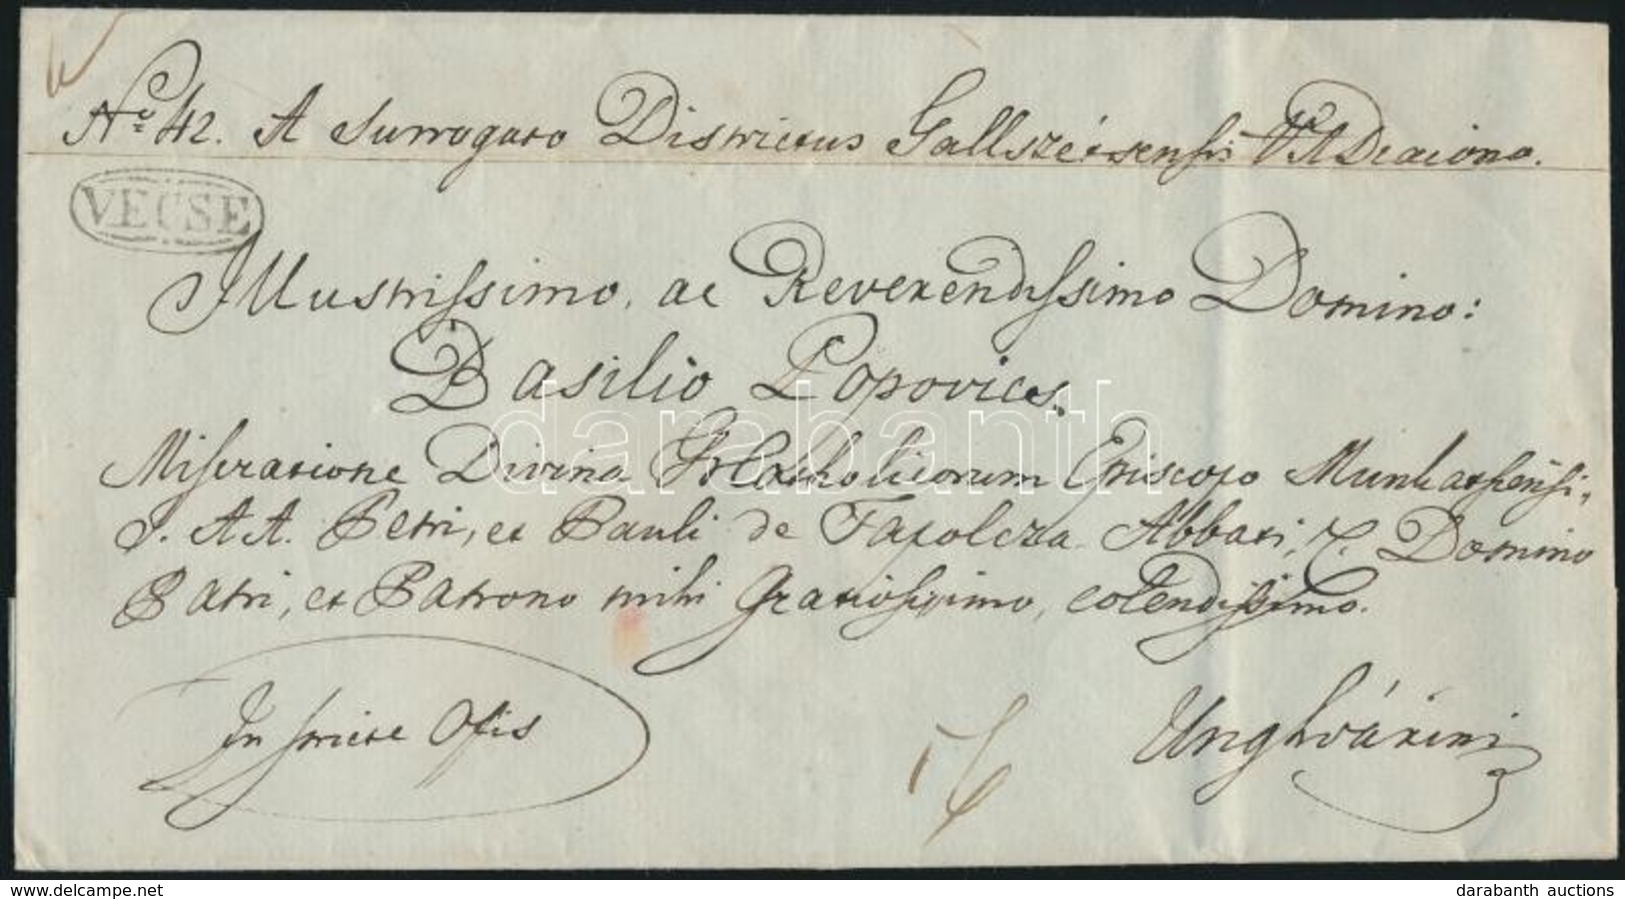 No. 42. A Surrogato Districtus Gallszécsensis V. A Diacono.
VECSE
Illustrissimo, ac Reverendissimo Domino:
Basilio Popovics.
Miseratione Divina Gr. Catholicorum Episcopo Munkacsiensi,
S. A A. Petri, et Pauli de Tapolcza Abbati, Domino
Patri, et Patrono mihi Gratiosissimo, colendissimo.
In Officis
Unghvárini
darabanth
www.delcampe.net
darabanth auctions